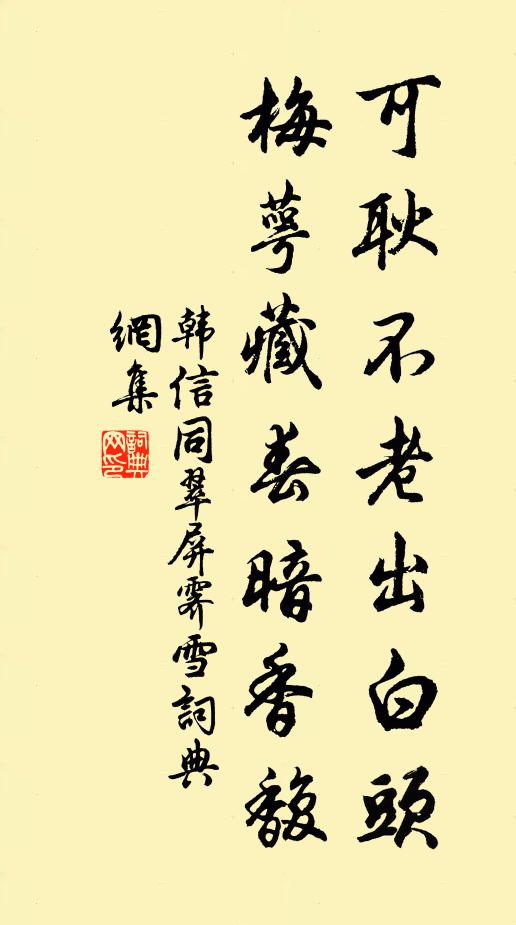 可耿不老出白頭
梅萼藏春暗香馥
韩信同翠屏霁雪詞典
網集
詞典
网印